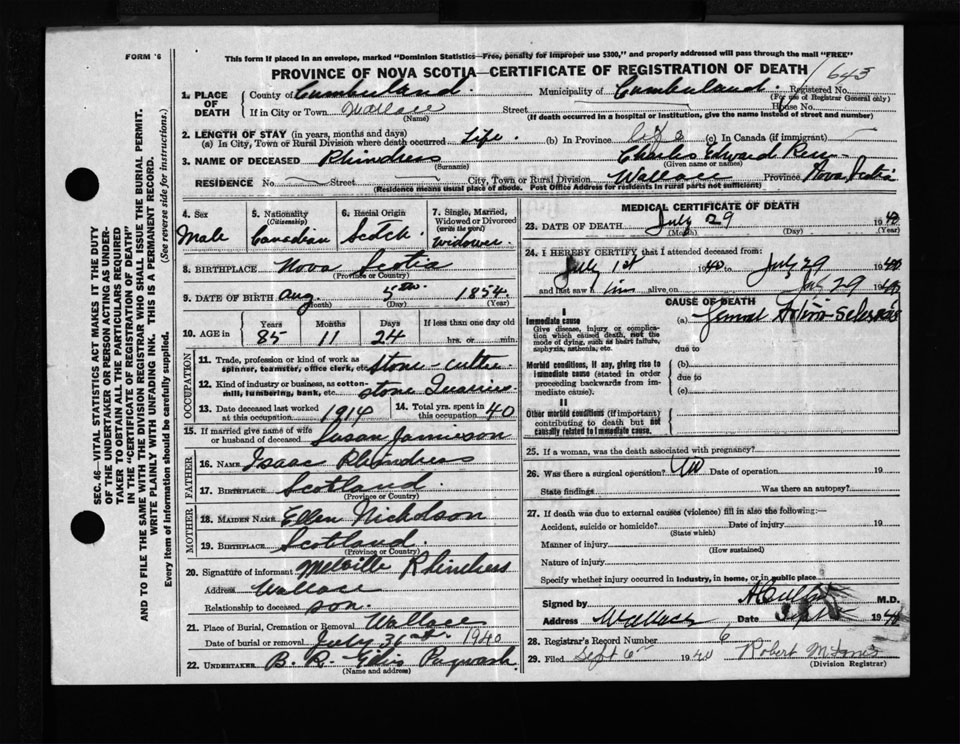 FORM 6
This form if placed in an envelope, marked "Dominion Statistics—Free, penalty for improper use $300," and properly addressed will pass through the mail "FREE"
PROVINCE OF NOVA SCOTIA—CERTIFICATE OF REGISTRATION OF DEATH
643
1. PLACE OF DEATH
County of Cumberland. Municipality of Cumberland. Registered No.
(For use of Registrar General only)
If in City or Town Wallace Street House No.
(Name) (If death occurred in a hospital or institution, give the name instead of street and number)
2. LENGTH OF STAY (in years, months and days)
(a) In City, Town or Rural Division where death occurred Life. (b) In Province Life (c) In Canada (if immigrant)
3. NAME OF DECEASED Rhindress Charles Edward
(Surname) (Given name or names)
RESIDENCE No. Street City, Town or Rural Division Wallace Province Nova Scotia
(Residence means usual place of abode. Post Office Address for residents in rural parts not sufficient)
SEC. 46—VITAL STATISTICS ACT MAKES IT THE DUTY
OF THE UNDERTAKER OR PERSON ACTING AS UNDER-
TAKER TO OBTAIN ALL THE PARTICULARS REQUIRED
IN THE "CERTIFICATE OF REGISTRATION OF DEATH"
AND TO FILE THE SAME WITH THE DIVISION REGISTRAR WHO SHALL ISSUE THE BURIAL PERMIT.
WRITE PLAINLY WITH UNFADING INK. THIS IS A PERMANENT RECORD.
Every item of information should be carefully supplied. (See reverse side for instructions.)
4. Sex
Male
5. Nationality
(Citizenship)
Canadian
6. Racial Origin
Scotch.
7. Single, Married,
Widowed or Divorced
(write the word)
Widower
8. BIRTHPLACE Nova Scotia
(Province or Country)
9. DATE OF BIRTH Aug. 5th 1854
(Month) (Day) (Year)
10. AGE in Years Months Days If less than one day old
85 11 24 hrs. or min.
OCCUPATION
11. Trade, profession or kind of work as
spinner, teamster, office clerk, etc. Stone Cutter
12. Kind of industry or business, as cotton-
mill, lumbering, bank, etc. Stone Quarries
13. Date deceased last worked
at this occupation 1914
14. Total yrs. spent in
this occupation 40
15. If married give name of wife
or husband of deceased Susan Jamieson
FATHER
16. NAME Isaac Rhindress
17. BIRTHPLACE Scotland.
(Province or Country)
MOTHER
18. MAIDEN NAME Ellen Nicholson
19. BIRTHPLACE Scotland.
(Province or Country)
20. Signature of informant Melville Rhindress
Address Wallace
Relationship to deceased son.
21. Place of Burial, Cremation or Removal Wallace
Date of burial or removal July 31st 1940
22. UNDERTAKER B. R. Ellis Pugwash.
(Name and address)
MEDICAL CERTIFICATE OF DEATH
23. DATE OF DEATH July 29 1940
(Month) (Day) (Year)
24. I HEREBY CERTIFY that I attended deceased from:
July 1st 1940 to July 29 1940
and last saw him alive on July 29 1940
CAUSE OF DEATH
I
Immediate cause (a)
Give disease, injury or complica-
tion which caused death, not the
mode of dying, such as heart failure,
asphyxia, asthenia, etc. due to
Morbid conditions, if any, giving rise to (b)
immediate cause (stated in order due to
proceeding backwards from im- (c)
mediate cause).
II
Other morbid conditions (if important)
contributing to death but not
causally related to immediate cause.
25. If a woman, was the death associated with pregnancy?
26. Was there a surgical operation? No Date of operation 19
State findings Was there an autopsy?
27. If death was due to external causes (violence) fill in also the following:—
Accident, suicide or homicide? Date of injury 19
(State which)
Manner of injury
(How sustained)
Nature of injury
Specify whether injury occurred in industry, in home, or in public place
Signed by M.D.
Address Wallace Date 1940
28. Registrar's Record Number 6
29. Filed Sept 6th 1940 Robert
(Division Registrar)